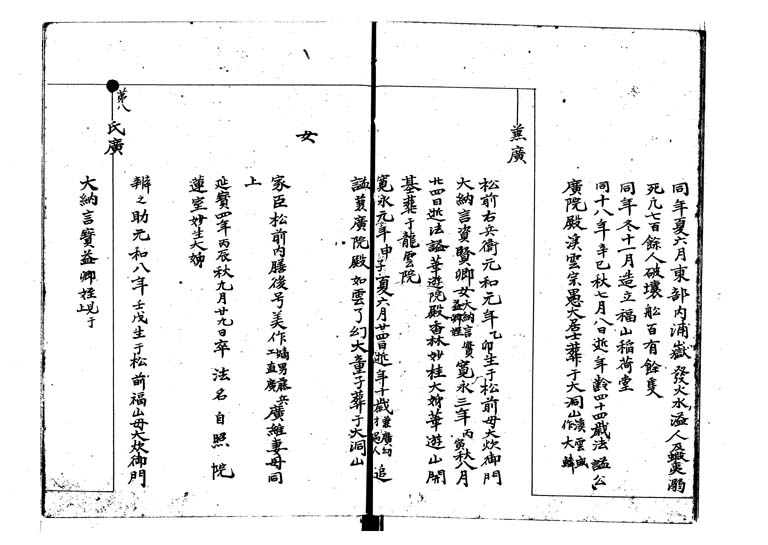 同年夏六月東部内浦嶽發火水溢人及蝦夷溺
死凡七百餘人破壊舩百有餘隻
同年冬十一月造立福山稲荷堂
同十八年辛巳秋七月八日逝年齢四十四歳法謚公
廣院殿渓雲宗愚大居士葬于大洞山渓雲或作大蟒
兼廣
松前右兵衛元和元年乙卯生于松前母大炊御門
大納言資賢卿女大納言實益卿姪寛永三年丙寅秋八月
廿四日逝法謚華遊院殿香林妙桂大姉華遊山開
基葬于龍雲院
寛永元年甲子夏六月廿四日逝年十歳兼廣幼才過人追
謚蓑廣院殿如雲了幻大童子葬于大洞山
女
家臣松前内膳後号美作嫡男藤兵工直廣廣維妻母同
上
延寳四年丙辰秋九月廿九日卒法名自照院
蓮室妙生大姉
第八
氏廣
辨之助元和八年壬戊生于松前福山母大炊御門
大納言實益卿姪見于上